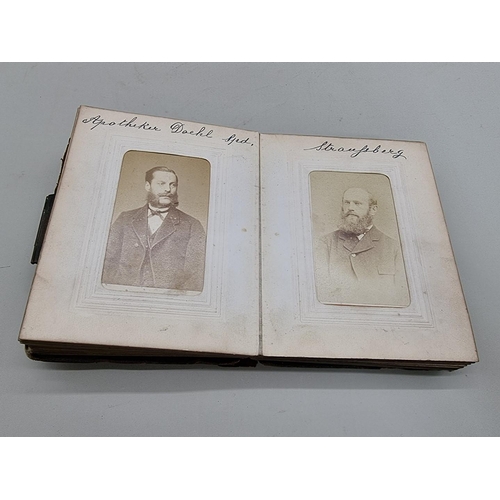 Apotheker Doehl Spd.
Straußberg